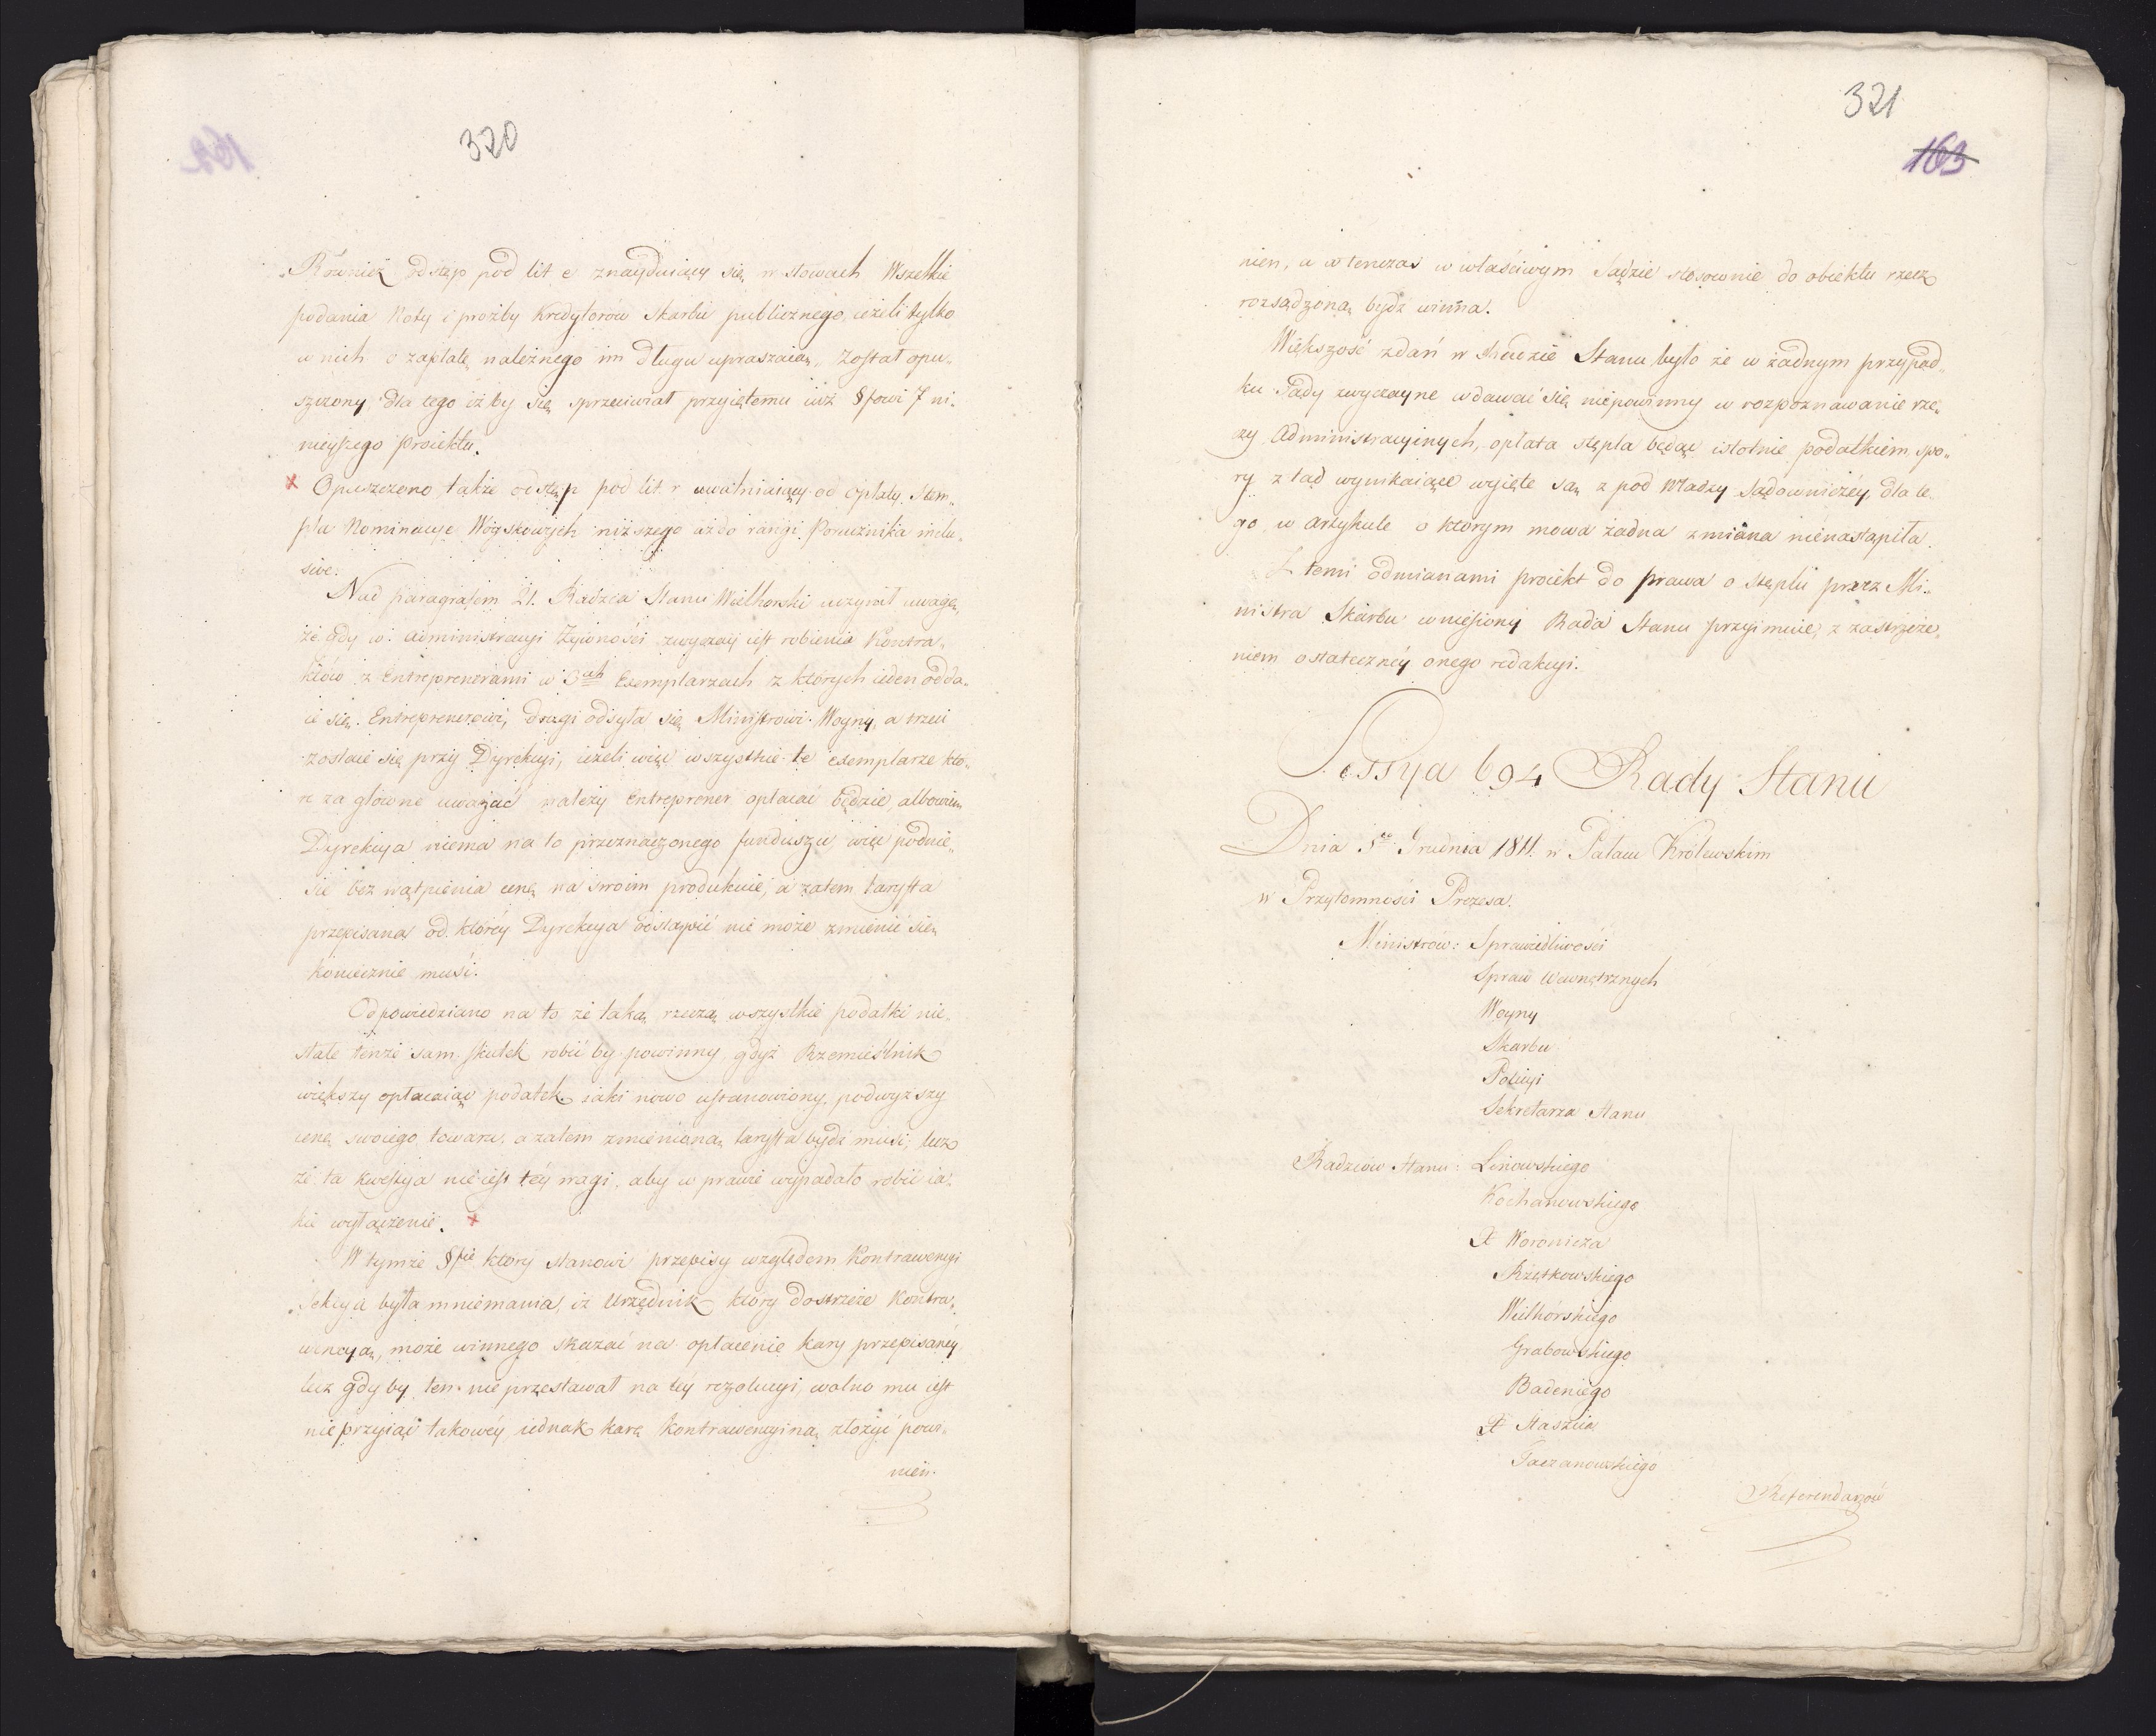 320
Również odstęp pod lit e znayduiący się w słowach Wszelkie
podania Noty i proźby Kredytorów Skarbu publicznego, ieżeli tylko
w nich o zapłatę należnego im długu upraszaią, Został opu„
szczony, dla tego iżby się sprzeciwiał przyiętemu iuż §fowi 7 ni„
nieyszego proiektu.
x Opuszczono także odstęp pod lit. r uwalniaiący od opłaty Stem„
pla Nominacye Woyskowych niższego aż do rangi Porucznika inclu„
sive.
Nad paragrafem 21. Radzca Stanu Wielhorski uczynił uwagę,
że gdy w: administracyi Żywności zwyczay iest robienia Kontra„
któw z Entreprenerami w 3ch Exemplarzach z których ieden odda„
ie się Entreprenerowi, drugi odsyła się Ministrowi Woyny, a trzeci
zostaie się przy Dyrekcyi, ieżeli więc wszystkie te exemplarze któ„
re za główne uważać należy Entreprener opłacać będzie, albowiem
Dyrekcya niema na to przeznaczonego funduszu, więc podnie„
sie bez wątpienia cenę na swoim produkcie, a zatem taryffa
przepisana od którey Dyrekcya odstąpić nie może zmienić się
koniecznie musi.
Odpowiedziano na to że taką rzeczą wszystkie podatki nie„
stałe tenże sam skutek robić by powinny, gdyż Rzemieślnik
większy opłacaiąc podatek iaki nowo ustanowiony podwyższy
cenę swoiego towaru, a zatem zmienioną taryffa bydź musi; lecz
że ta kwestya nie iest téy wagi, aby w prawie wypadało robić ia„
kie wyłączenie. x
W tymże §fie który stanowi przepisy względem Kontrawencyi
Sekcya była mniemania, iż Urzędnik który dostrzeże Kontra„
wencyą, może winnego skazać na opłacenie kary przepisanéy
lecz gdyby ten nie przestawał na téy rezolucyi, wolno mu iest
nieprzyiąć takowéy, iednak karę kontrawencyiną złożyć powi„
nien.
321
163
nien, a wtenczas w właściwym Sądzie stosownie do obiektu rzecz
rozsądzoną bydź winna.
Większość zdań w Radzie Stanu było że w żadnym przypad„
ku Sądy zwyczayne wdawać się niepowinny w rozpoznawanie rze„
czy Administracyinych, opłata stępla będąc istotnie podatkiem, spo„
ry ztąd wynikaiące wyięte są z pod Władzy Sądowniczéy, dla te„
go w artykule o którym mowa żadna zmiana nienastąpiła.
Z temi odmianami proiekt do prawa o Stęplu przez Mi„
nistra Skarbu wniesiony Rada Stanu przyimuie, z zastrzeże„
niem ostateczney onego redakcyi.
Sessya 694 Rady Stanu
Dnia 5go Grudnia 1811. w Pałacu Królewskim
w Przytomności Prezesa.
Ministrów: Sprawiedliwości
Spraw Wewnętrznych
Woyny
Skarbu
Policyi
Sekretarza Stanu
Radzców Stanu: Linowskiego
Kochanowskiego
X Woronicza
Rzętkowskiego
Wielhórskiego
Grabowskiego
Badeniego
X Staszica
Taczanowskiego
Referendarzów